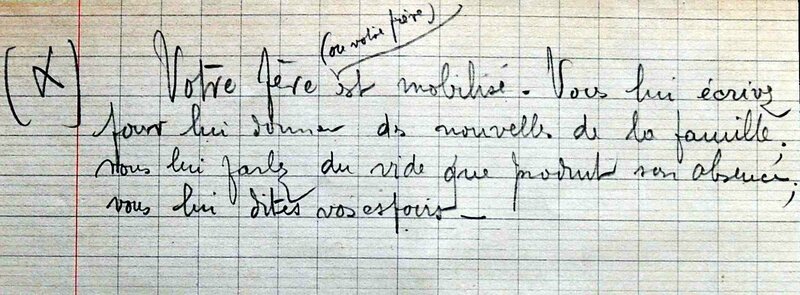 (ou votre frère)
(α) Votre père est mobilisé. Vous lui écrivez
pour lui donner des nouvelles de la famille.
vous lui parlez du vide que produit son absence;
vous lui dites vos espoirs _